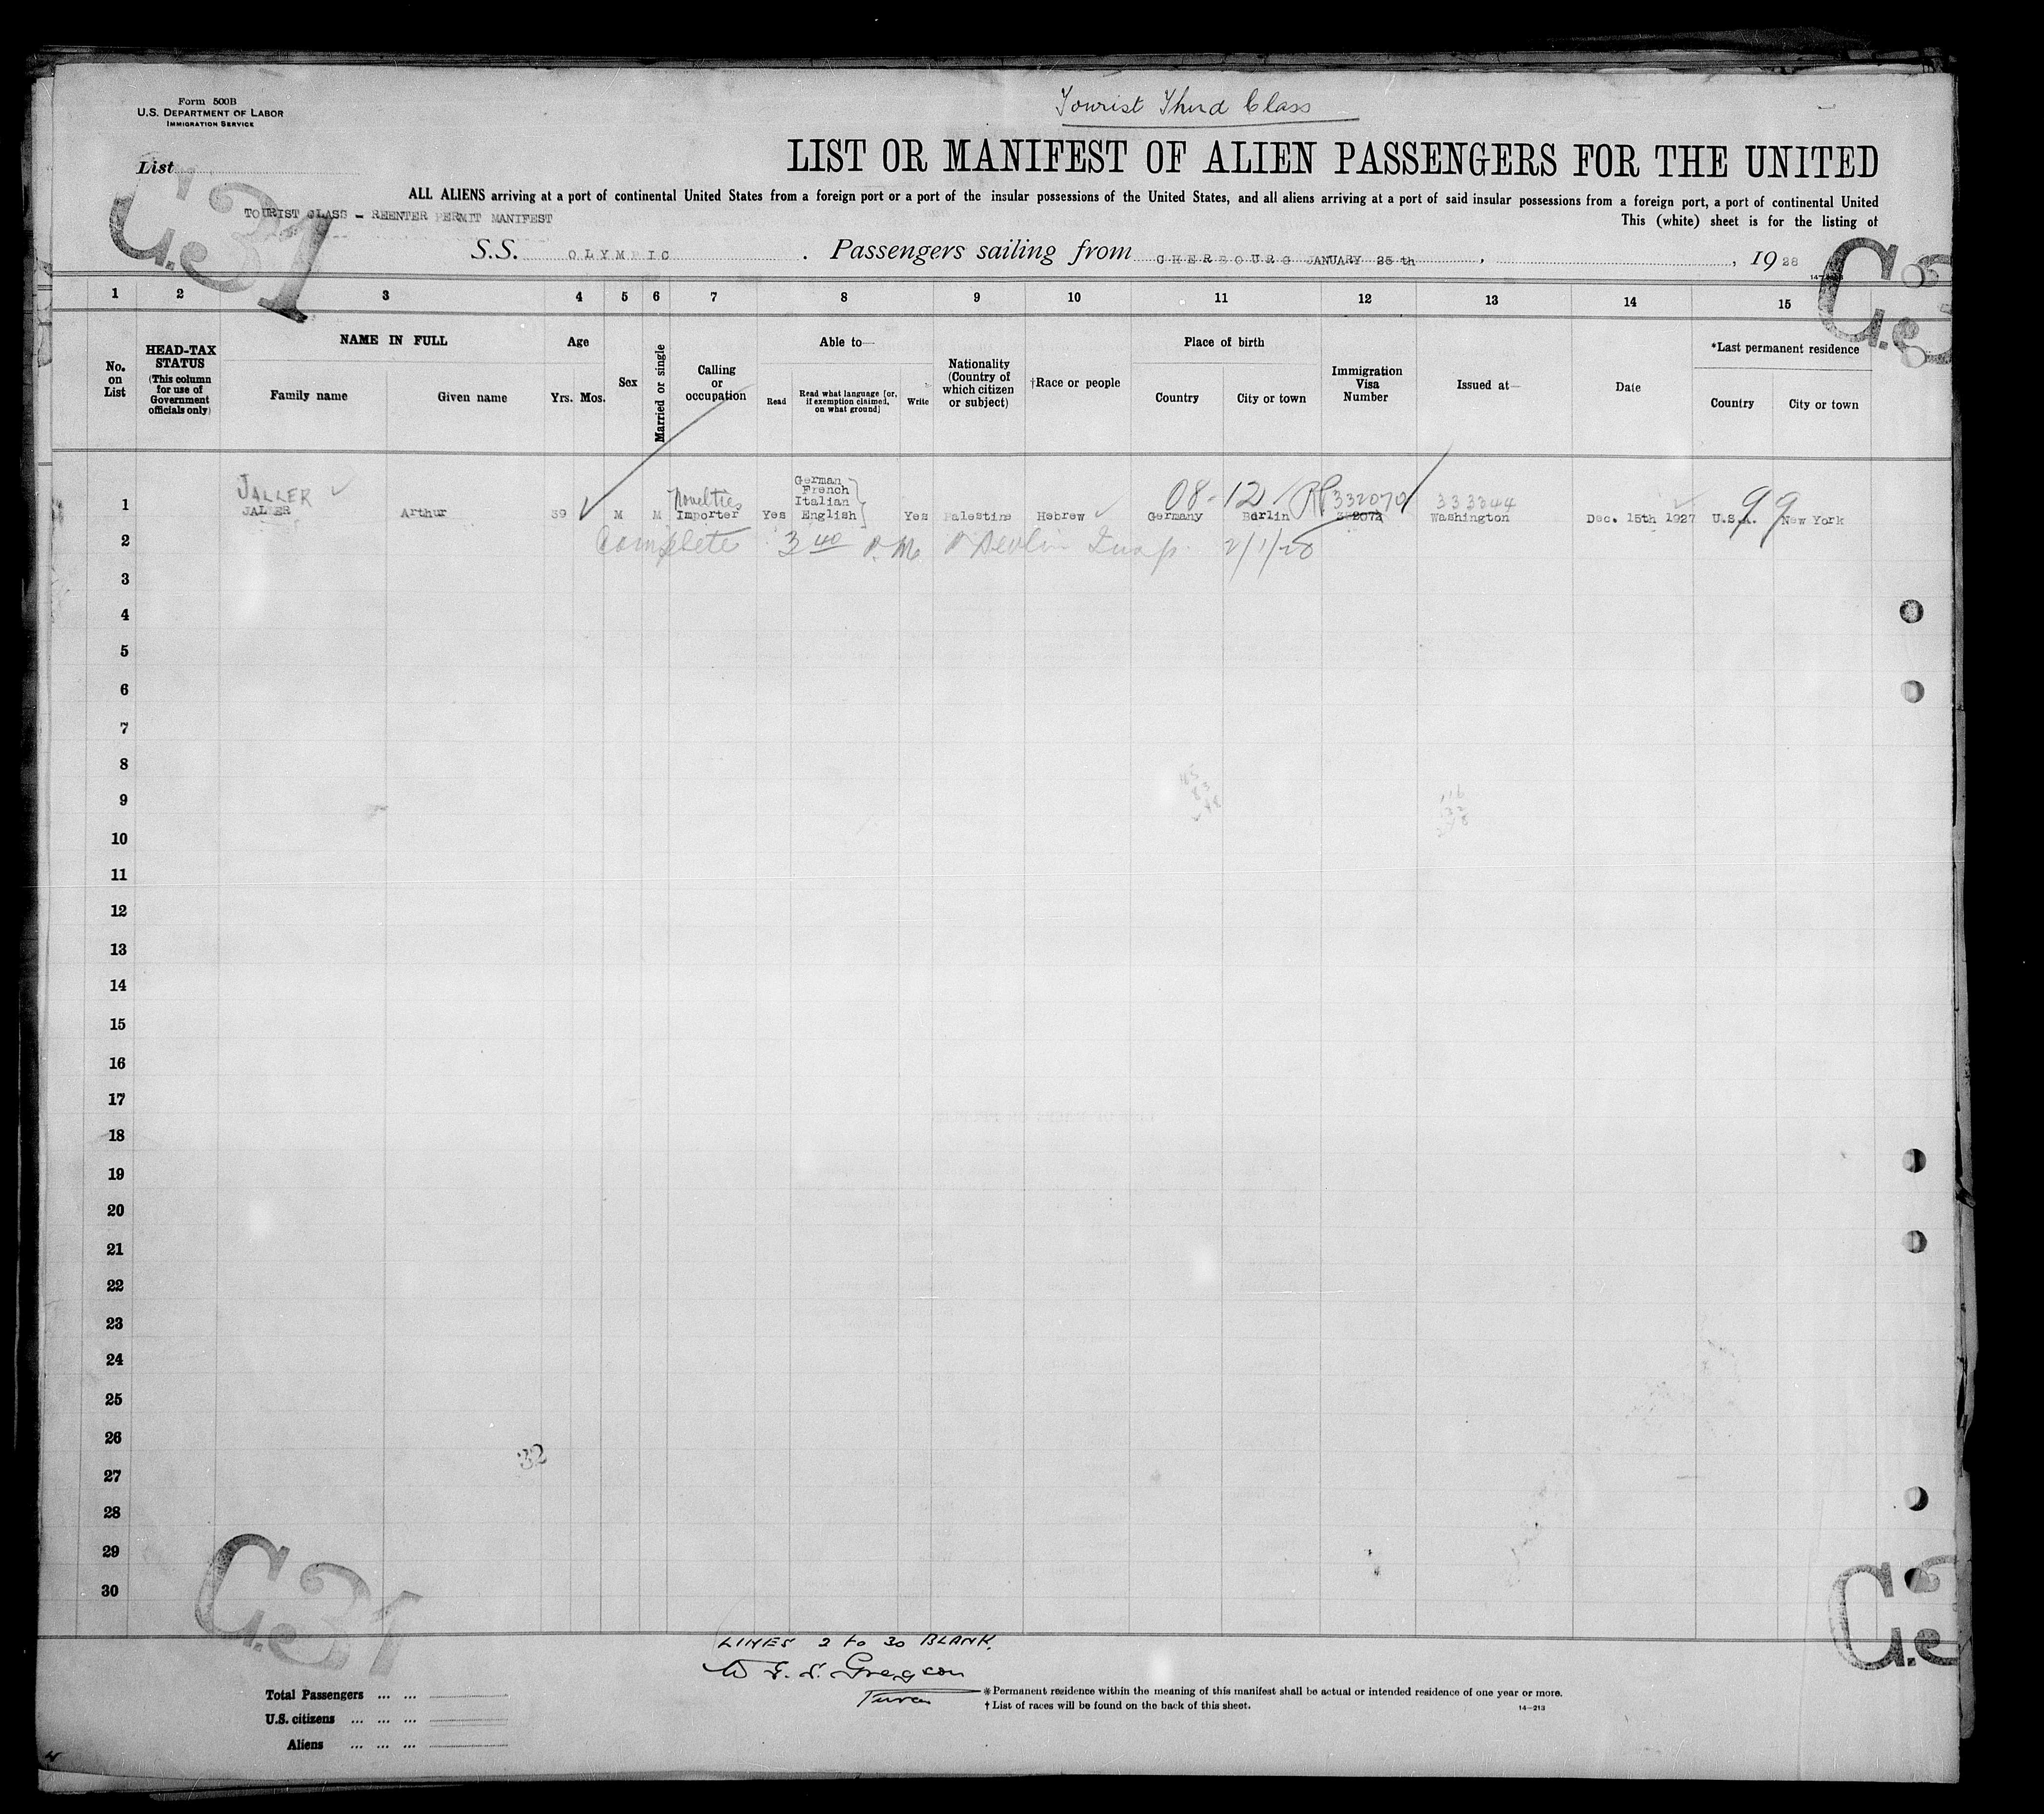 Form 500B
U.S. DEPARTMENT OF LABOR
IMMIGRATION SERVICE
Tourist Third Class
List
LIST OR MANIFEST OF ALIEN PASSENGERS FOR THE UNITED
ALL ALIENS arriving at a port of continental United States from a foreign port or a port of the insular possessions of the United States, and all aliens arriving at a port of said insular possessions from a foreign port, a port of continental United
TOURIST CLASS - REENTER PERMIT MANIFEST
This (white) sheet is for the listing of
C.31
S.S. OLYMPIC. Passengers sailing from CHERBOURG JANUARY 25 th, , 1928
1 2 3 4 5 6 7 8 9 10 11 12 13 14 15
No. on List
HEAD-TAX STATUS
(This column for use of Government officials only)
NAME IN FULL
Family name Given name
Age
Yrs. Mos.
Sex
Married or single
Calling or occupation
Able to—
Read
Read what language [or, if exemption claimed, on what ground]
Write
Nationality (Country of which citizen or subject)
†Race or people
Place of birth
Country City or town
Immigration Visa Number
Issued at—
Date
*Last permanent residence
Country City or town
JALLER
Novelties
German
French
Italian
08-12 RP 332070 333344 99
1 JALLER Arthur 39 M M Importer Yes English Yes Palestine Hebrew Germany Berlin Washington Dec. 15th 1927 U.S.A. New York
2 Complete 3 40 P.M. Devlin Insp. 2/1/28
3
4
5
6
7
8
9
10
11
12
13
14
15
16
17
18
19
20
21
22
23
24
25
26
27
32
28
29
30
C.31
LINES 2 to 30 BLANK.
Gregson
Total Passengers ... ...
U.S. citizens ... ... ...
Aliens ... ... ...
* Permanent residence within the meaning of this manifest shall be actual or intended residence of one year or more.
† List of races will be found on the back of this sheet.
14—213